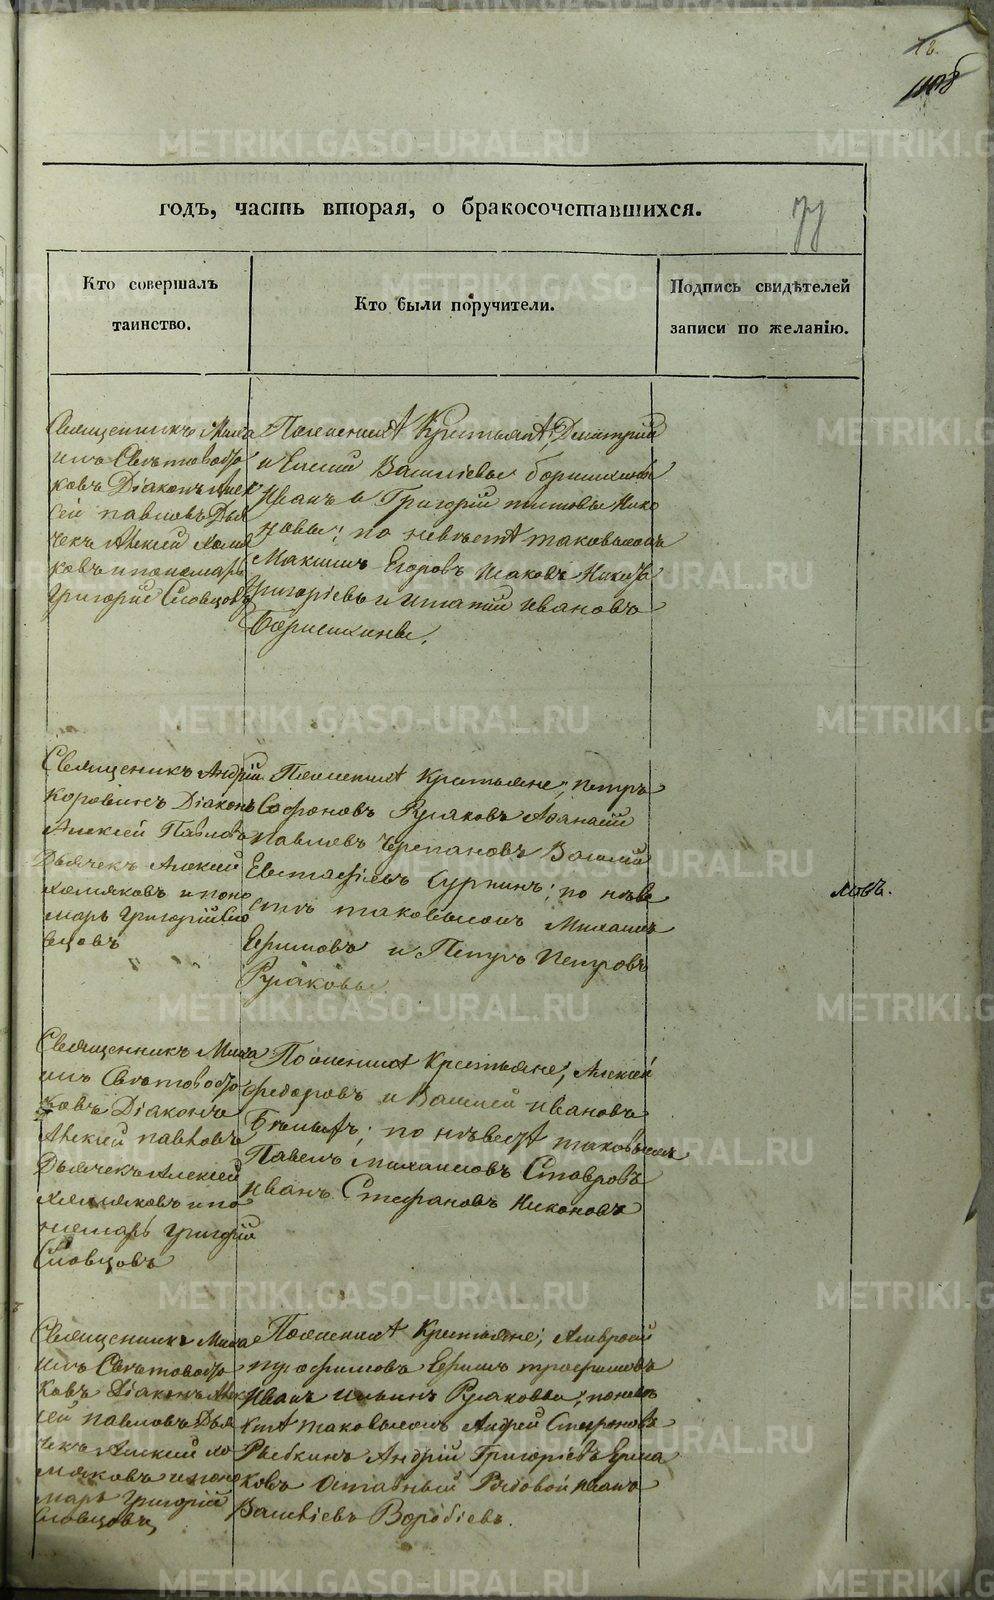 годъ, часть вторая, о бракосочетавшихся.
77
Кто совершалъ
таинство.
Кто были поручители.
Подпись свидѣтелей
записи по желанію.
Священникъ Миха
илъ Святовобро
ковъ Діаконъ Алек
сей Павловъ Дья
чекъ Алексей Холмя
ковъ и пономарь
Григорий Словцовъ
Крестьяне; Дмитрий
и Василіевы
Иванъ и Григорій Титовы Нико
новы; по невестѣ таковыежъ
Максимъ Егоровъ Исаковъ Никита
Григоріевъ и Ипатий Ивановъ
Священикъ Андрій
Коровинъ Діаконъ
Алексей Павловъ
Дьячекъ Алексей
Холмяковъ и поно
марь Григорій Сло
вцовъ
Крестьяне; Петръ
Софроновъ Русаковъ Афанасий
Павловъ Черепановъ Василий
Евстафіевъ Суринъ; по неве
стѣ таковыежъ Михаилъ
Ефимовъ и Петръ Петровъ
Русаковы
Священникъ Миха
илъ Святовобро
ковъ Діаконъ
Алексей Павловъ
Дьячекъ Алексей
Холмяковъ и по
номарь Григорій
Словцовъ
Крестьяне; Алексей
Федоровъ и Василей Ивановъ
по невестѣ таковыежъ
Павелъ Михаиловъ Ставровъ
Иванъ Стефановъ Никоновъ
Священникъ Миха
илъ Святовобро
ковъ Діаконъ Алек
сей Павловъ Дья
чекъ Алексей Хол
мяковъ и поно
марь Григорій
Словцовъ
Крестьяне; Амвросий
Ефимъ Трофимовъ
Иванъ Ильинъ Русаковы; по неве
стѣ таковыежъ Андрей Стефановъ
Рыбкинъ Андрій Григоріевъ Ерма
ковъ Отставный Рядовой Иванъ
Василіевъ Воробіевъ.
METRIKI.GASO-URAL.RU